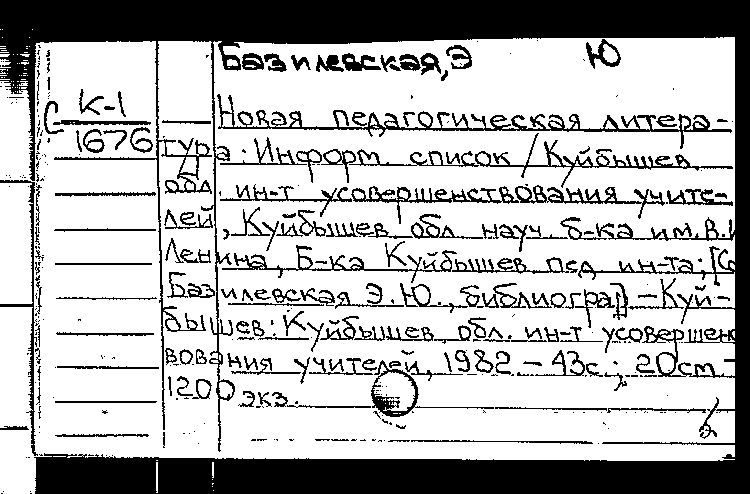 Базилевская, Э Ю
С К-1
1676
Новая педагогическая литера-
тура: Информ. список / Куйбышев.
обл. ин-т усовершенствования учите-
лей, Куйбышев. обл. науч. б-ка им. В.И
Ленина, Б-ка Куйбышев. пед. ин-та; [Со
Базилевская Э.Ю., библиограф] – Куй-
бышев: Куйбышев. обл. ин-т усовершен
вования учителей, 1982. – 43с.; 20см. –
1200 экз.